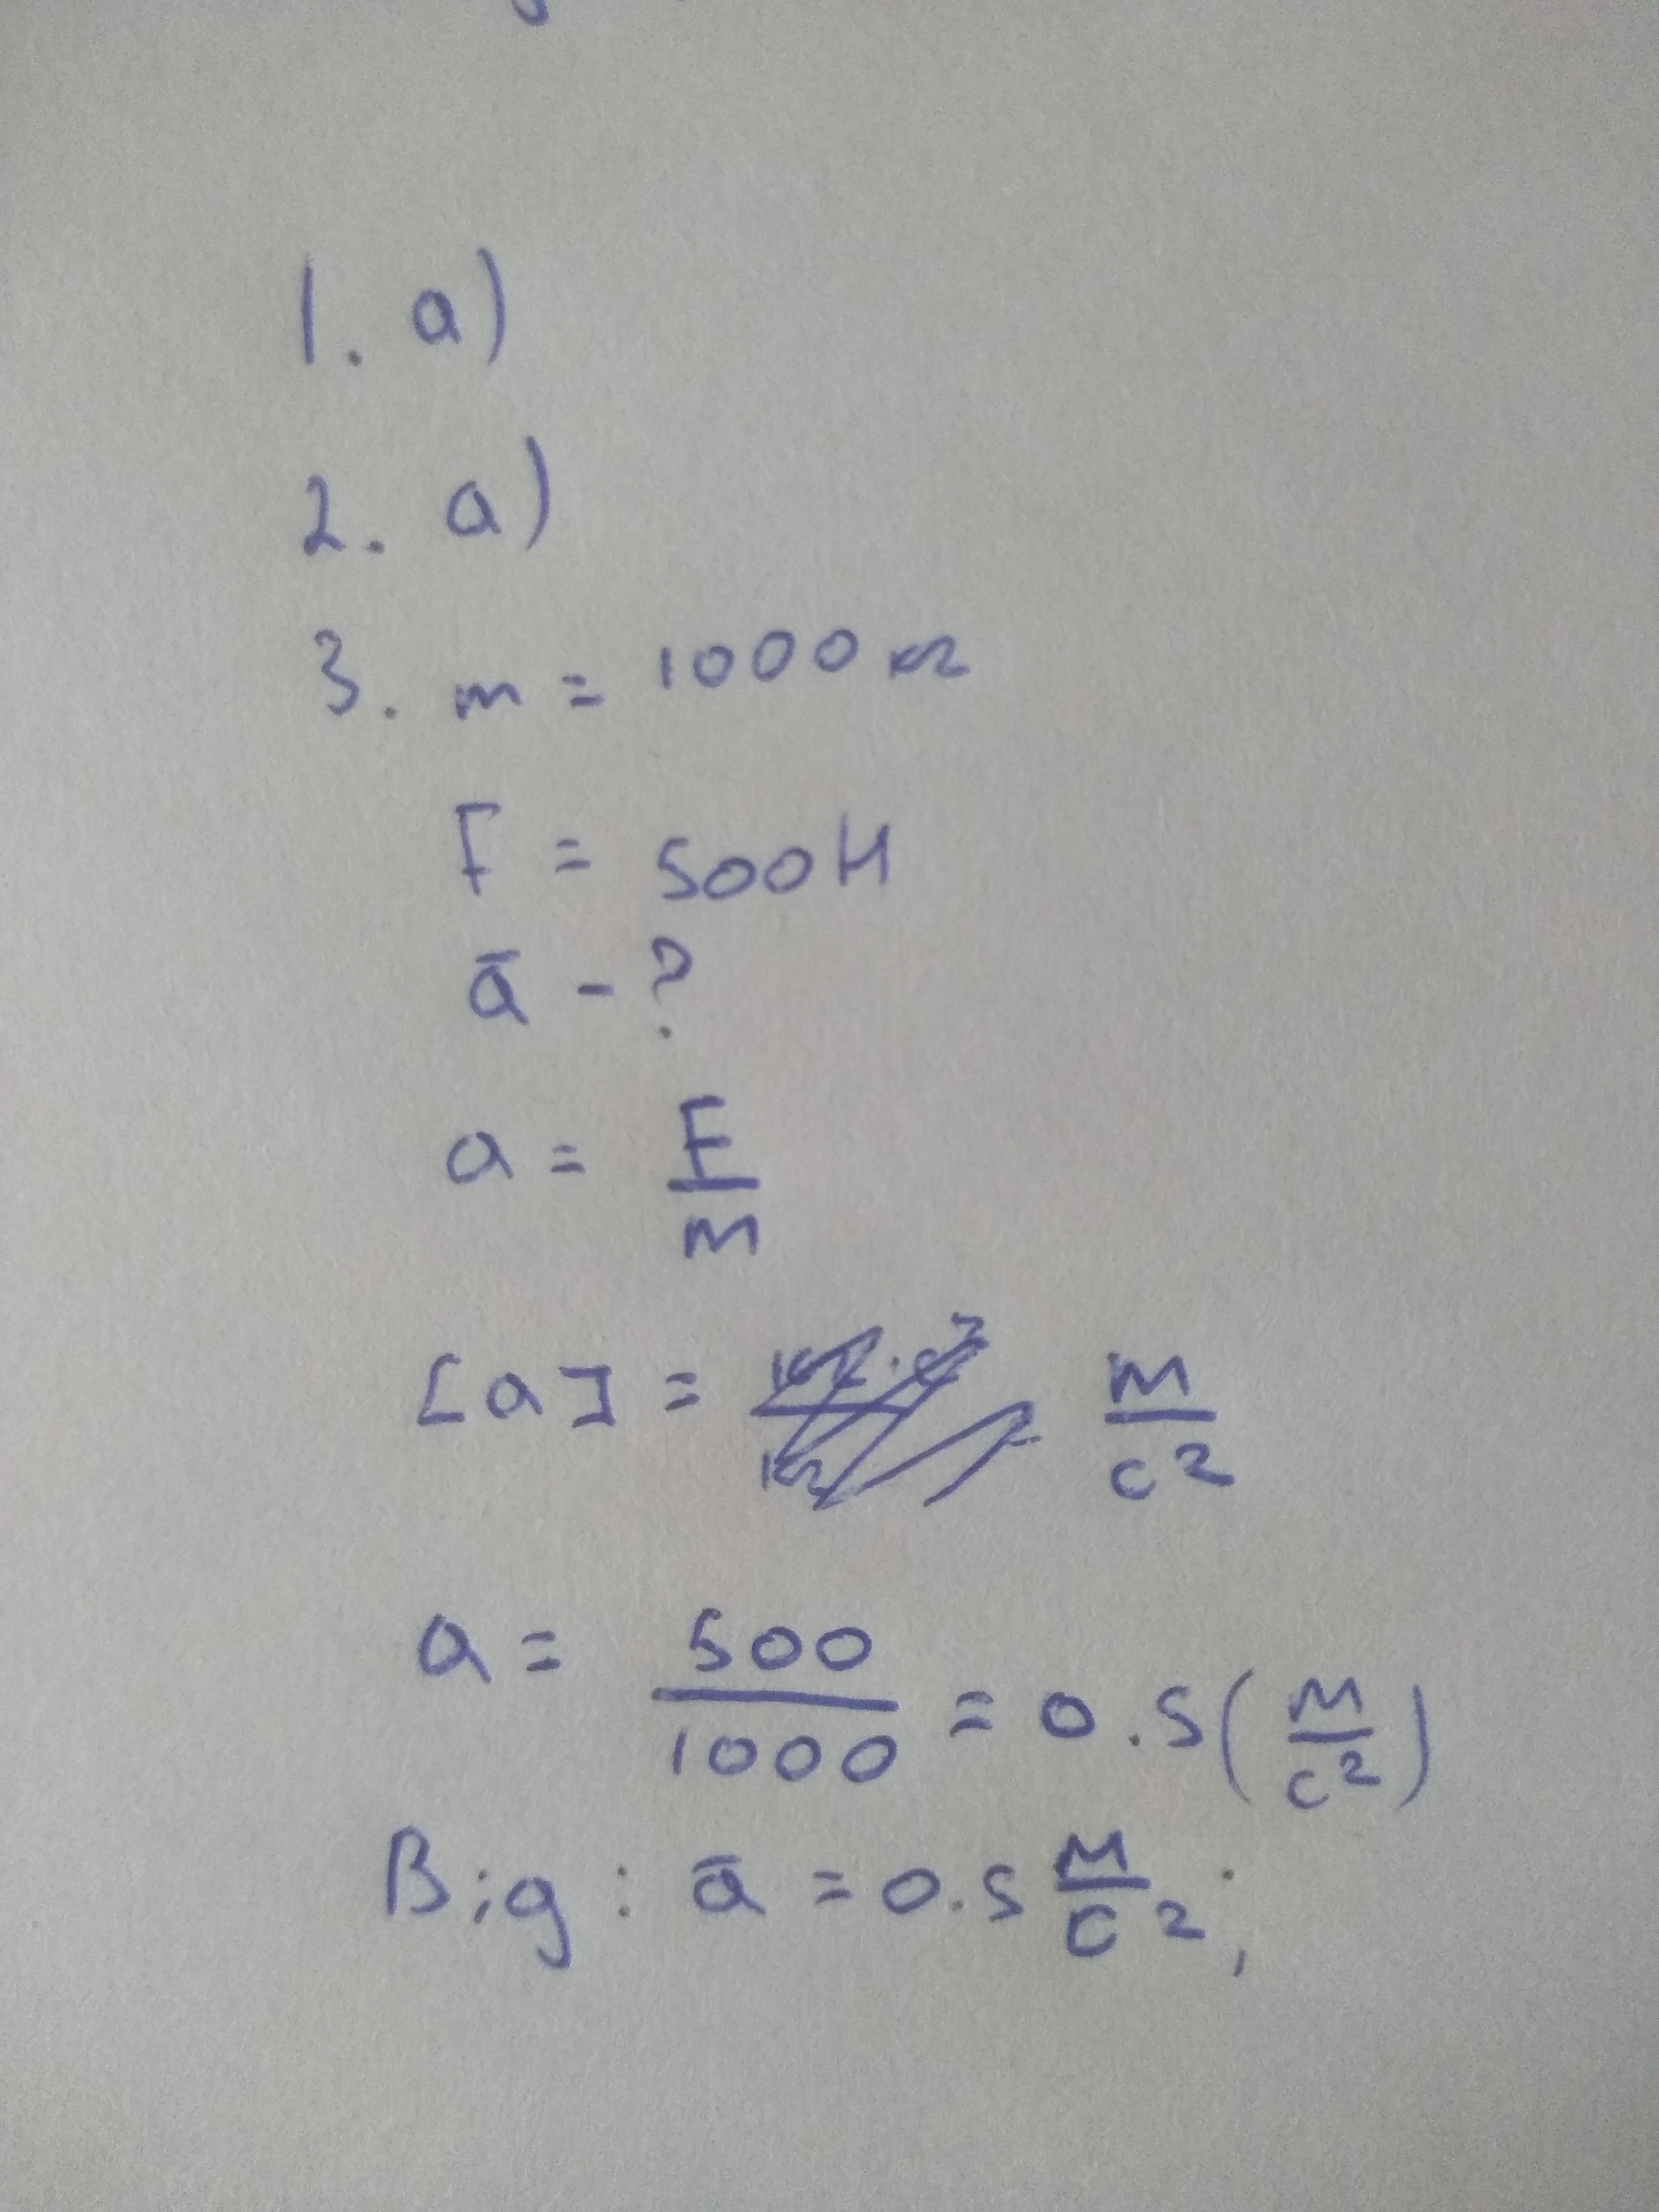 1. а)
2. а)
3. m = 1000 кг
F = 500 Н
ā - ?
a = F/m
[a] = м/с²
a = 500/1000 = 0.5 (м/с²)
Від: ā = 0.5 м/с²;